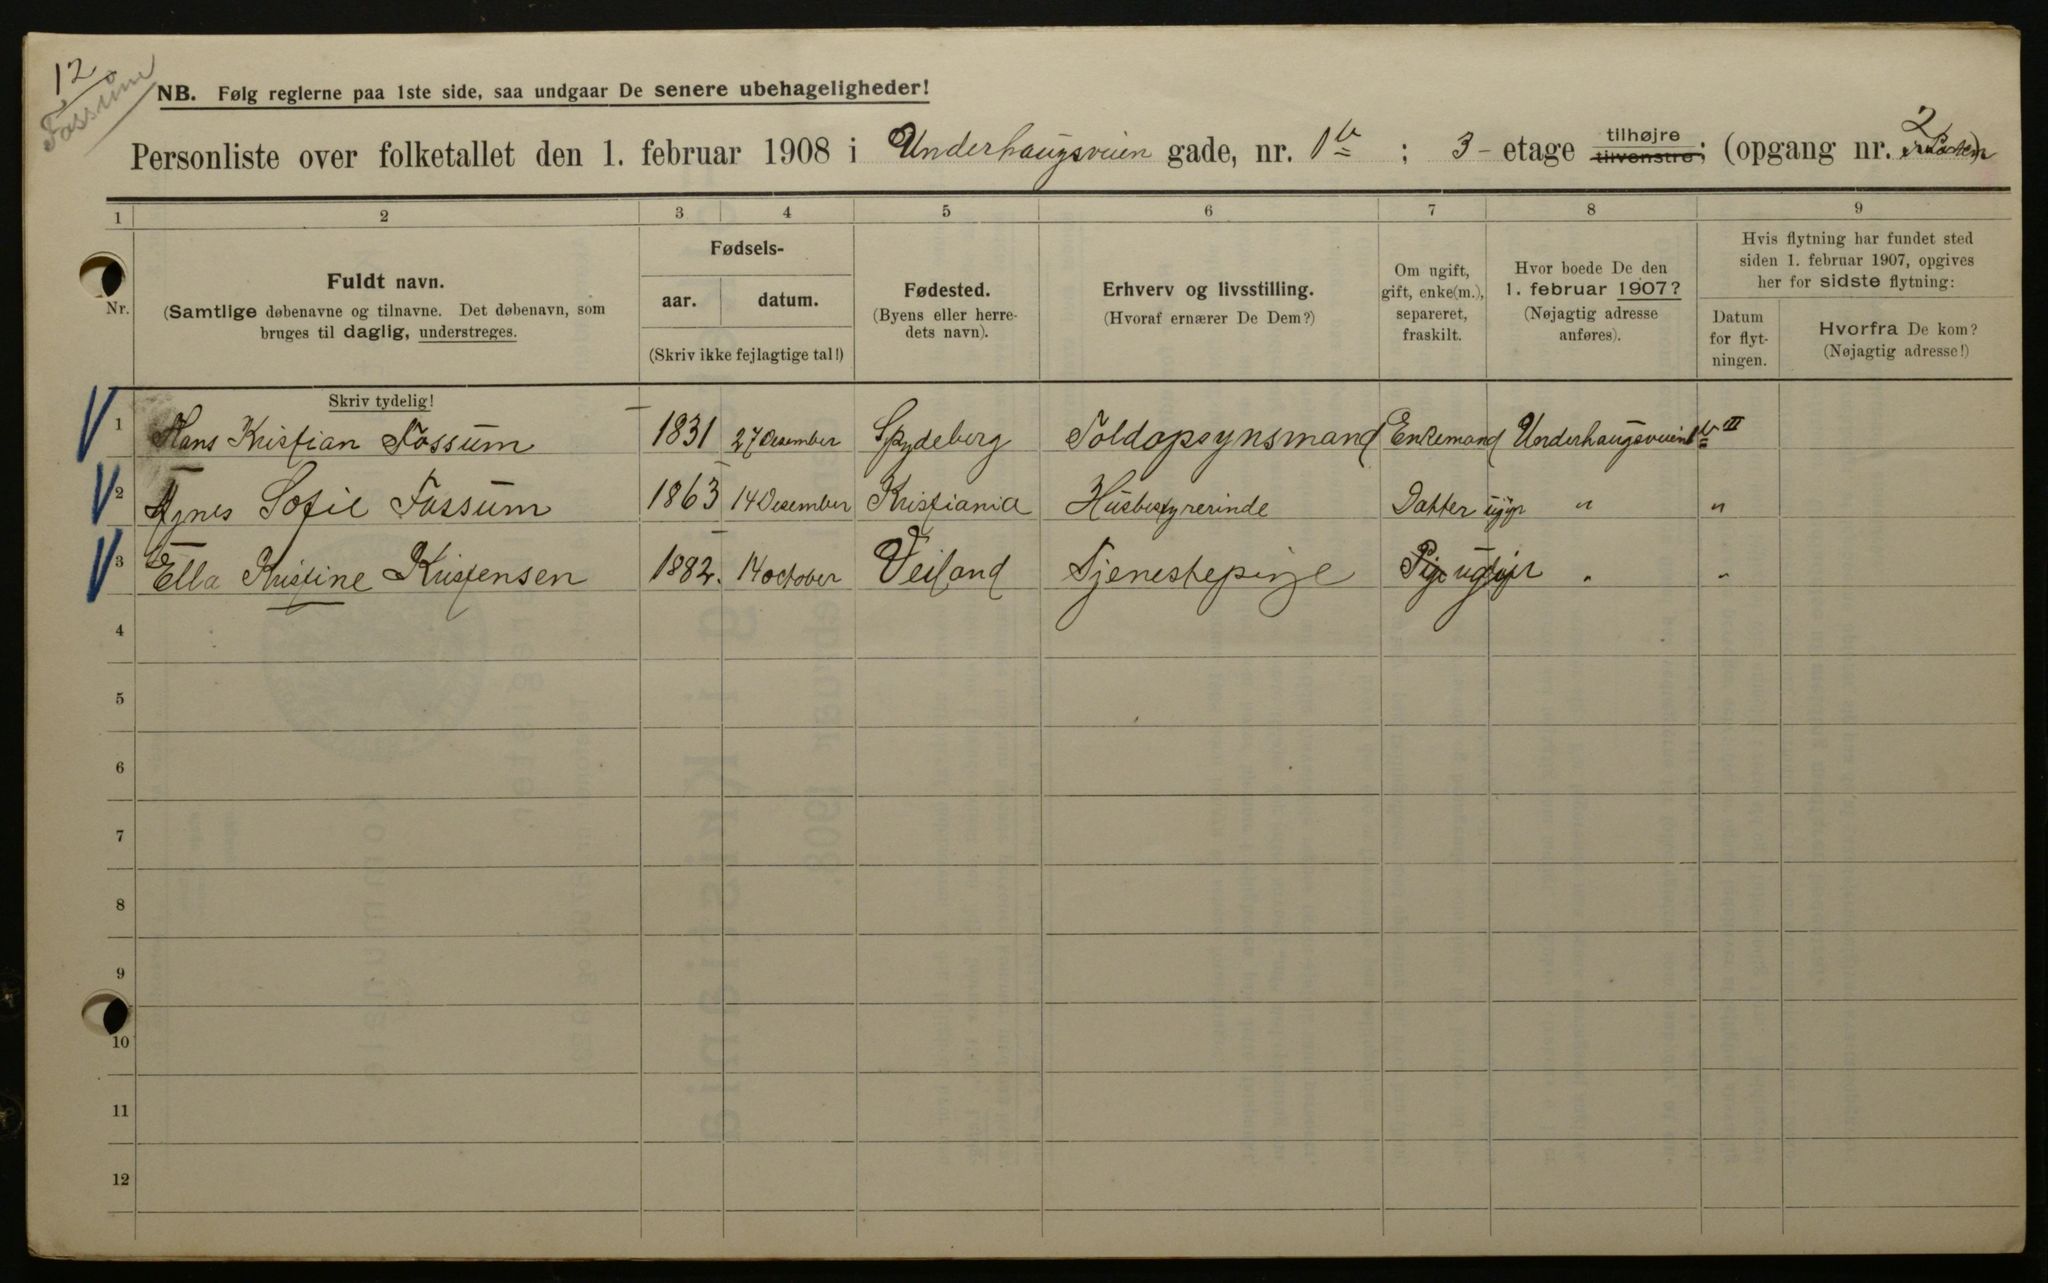 12
Fassum
NB. Følg reglerne paa 1ste side, saa undgaar De senere ubehageligheder!
Personliste over folketallet den 1. februar 1908 i Underhaugsveien gade, nr. 1b ; 3- etage tilhøjre tilvenstre; (opgang nr. 2
1 2 3 4 5 6 7 8 9
Nr.
Fuldt navn.
(Samtlige døbenavne og tilnavne. Det døbenavn, som
bruges til daglig, understreges.
Fødsels-
aar. datum.
(Skriv ikke fejlagtige tal!)
Fødested.
(Byens eller herre-
dets navn).
Erhverv og livsstilling.
(Hvoraf ernærer De Dem?)
Om ugift,
gift, enke(m.),
separeret,
fraskilt.
Hvor boede De den
1. februar 1907?
(Nøjagtig adresse
anføres).
Hvis flytning har fundet sted
siden 1. februar 1907, opgives
her for sidste flytning:
Datum
for flyt-
ningen.
Hvorfra De kom?
(Nøjagtig adresse!)
Skriv tydelig!
1 Hans Kristian Fossum 1831 27 Desember Spydeberg Toldopsynsmand Enkemand Underhaugsveien 1b II
2 Agnes Sofie Fossum 1863 14 Desember Kristiania Husbestyrerinde Datter ugift " "
3 Ella Kristine Kristensen 1882. 14 october Veiland Tjenestepige Pige ugift " "
4
5
6
7
8
9
10
11
12